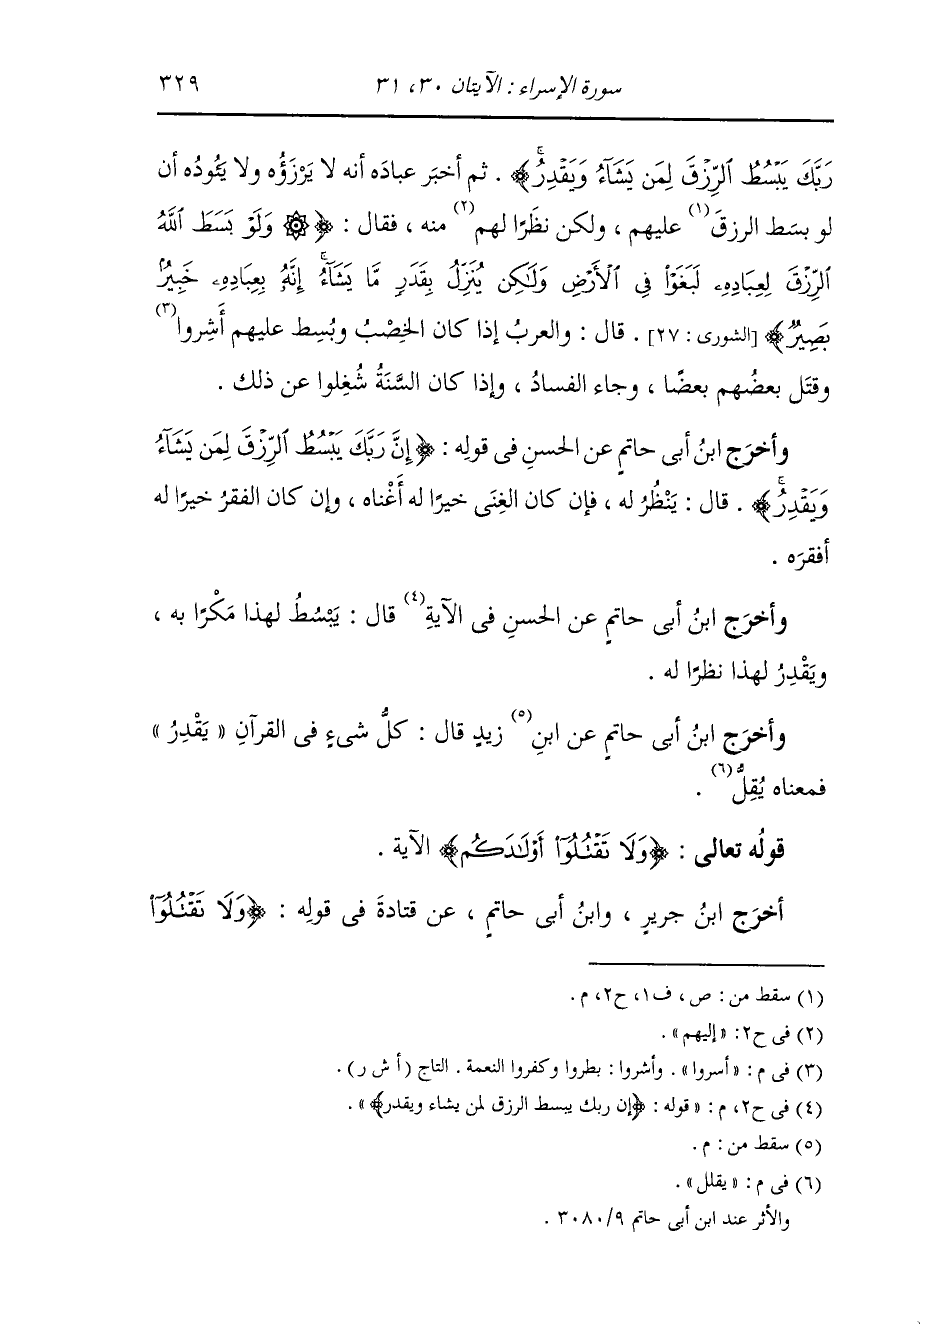 سورة الإسراء : الآيتان ٣٠، ٣١ ٣٢٩
رَبَّكَ يَبْسُطُ ٱلرِّزْقَ لِمَن يَشَآءُ وَيَقْدِرُۚ﴾ . ثم أخبَر عبادَه أنه لا يَرْزَؤُه ولا يَئُودُه أن
لو بسَط الرزقَ(١) عليهم ، ولكن نظَرًا لهم(٢) منه ، فقال : ﴿۞ وَلَوْ بَسَطَ ٱللَّهُ
ٱلرِّزْقَ لِعِبَادِهِۦ لَبَغَوْا۟ فِى ٱلْأَرْضِ وَلَـٰكِن يُنَزِّلُ بِقَدَرٍ مَّا يَشَآءُۚ إِنَّهُۥ بِعِبَادِهِۦ خَبِيرٌۢ
بَصِيرٌ﴾ [الشورى : ٢٧] . قال : والعربُ إذا كان الخِصْبُ وبُسِط عليهم أَشِروا(٣)
وقتَل بعضُهم بعضًا ، وجاء الفسادُ ، وإذا كان السَّنَةُ شُغِلوا عن ذلك .
وأخرَج ابنُ أبى حاتمٍ عن الحسنِ فى قولِه : ﴿إِنَّ رَبَّكَ يَبْسُطُ ٱلرِّزْقَ لِمَن يَشَآءُ
وَيَقْدِرُۚ﴾ . قال : يَنْظُرُ له ، فإن كان الغِنَى خيرًا له أَغْناه ، وإن كان الفقرُ خيرًا له
أفقرَه .
وأخرَج ابنُ أبى حاتمٍ عن الحسنِ فى الآيةِ(٤) قال : يَبْسُطُ لهذا مَكْرًا به ،
ويَقْدِرُ لهذا نظرًا له .
وأخرَج ابنُ أبى حاتمٍ عن ابنِ(٥) زيدٍ قال : كلُّ شىءٍ فى القرآنِ « يَقْدِرُ »
فمعناه يُقِلُّ(٦) .
قولُه تعالى : ﴿وَلَا تَقْتُلُوٓا۟ أَوْلَـٰدَكُم﴾ الآية .
أخرَج ابنُ جريرٍ ، وابنُ أبى حاتمٍ ، عن قتادةَ فى قولِه : ﴿وَلَا تَقْتُلُوٓا۟
(١) سقط من : ص ، ف١، ح٢، م .
(٢) فى ح٢: « إليهم » .
(٣) فى م : « أسروا » . وأشروا : بطروا وكفروا النعمة . التاج (أ ش ر) .
(٤) فى ح٢، م : « قوله : ﴿إن ربك يبسط الرزق لمن يشاء ويقدر﴾ » .
(٥) سقط من : م .
(٦) فى م : « يقلل » .
والأثر عند ابن أبى حاتم ٣٠٨٠/٩ .